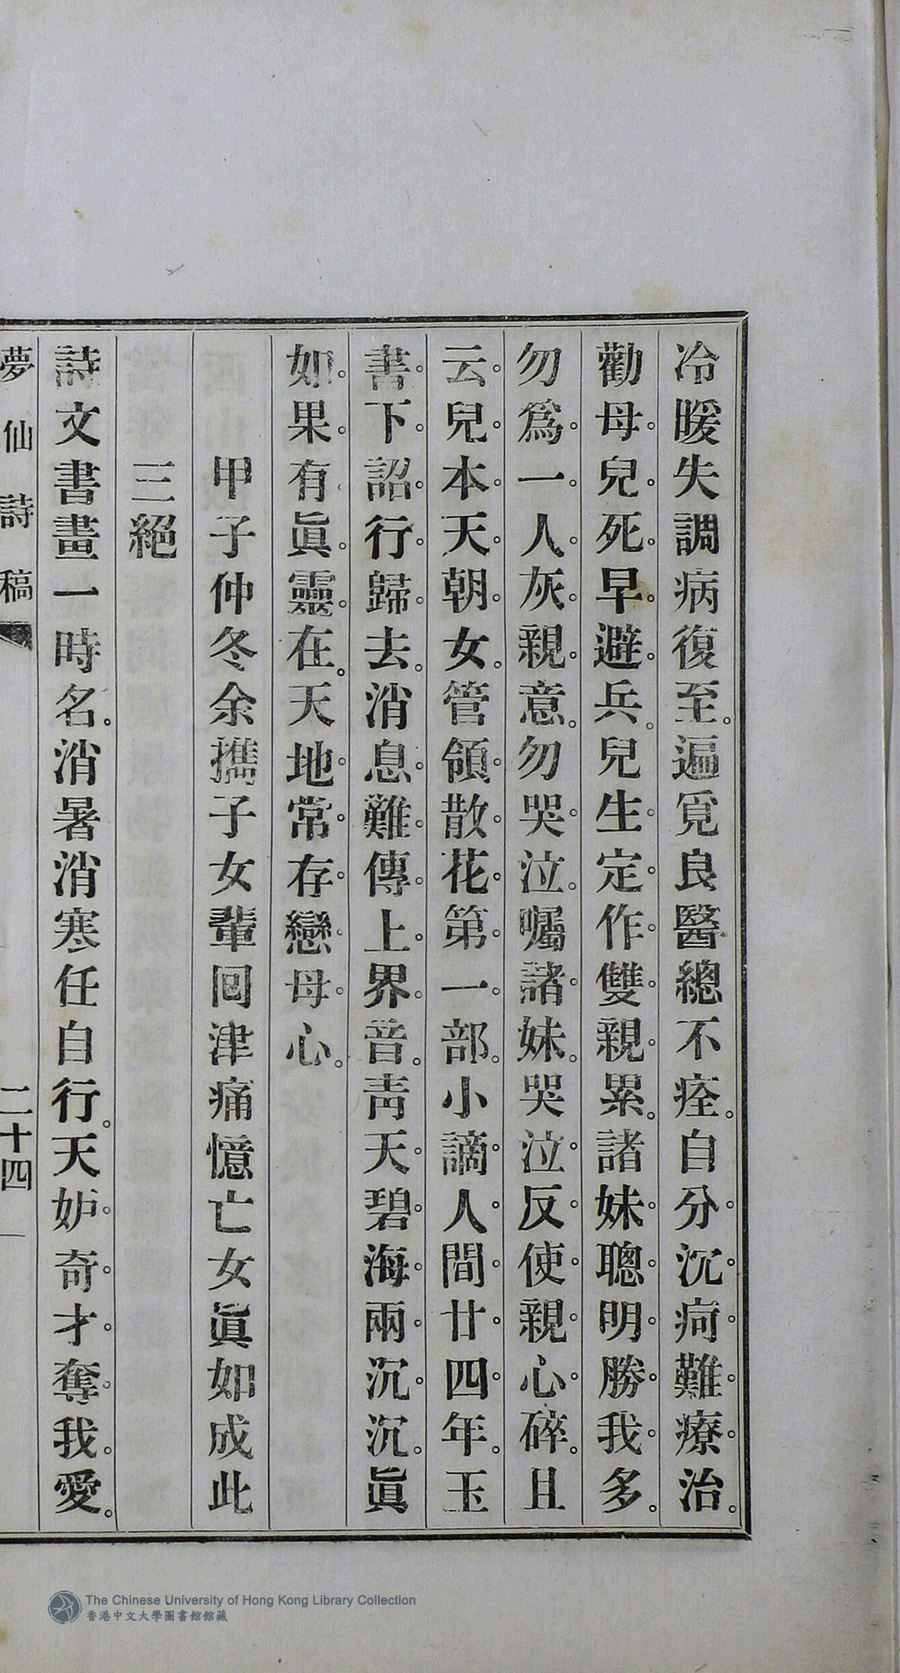 冷暖失調病復至。遍覓良醫總不痊。自分沉疴難療治。
勸母兒死早避兵。兒生定作雙親累。諸妹聰明勝我多。
勿爲一人灰親意。勿哭泣。囑諸妹。哭泣反使親心碎。且
云兒本天朝女。管領散花第一部。小謫人間廿四年。玉
書下詔行歸去。消息難傳上界音。靑天碧海兩沉沉。眞
如果有眞靈在。天地常存戀母心。
甲子仲冬余攜子女輩回津痛憶亡女眞如成此
三絕
詩文書畫一時名。消暑消寒任自行。天妒奇才奪我愛。
夢仙詩稿
二十四
The Chinese University of Hong Kong Library Collection
香港中文大學圖書館館藏